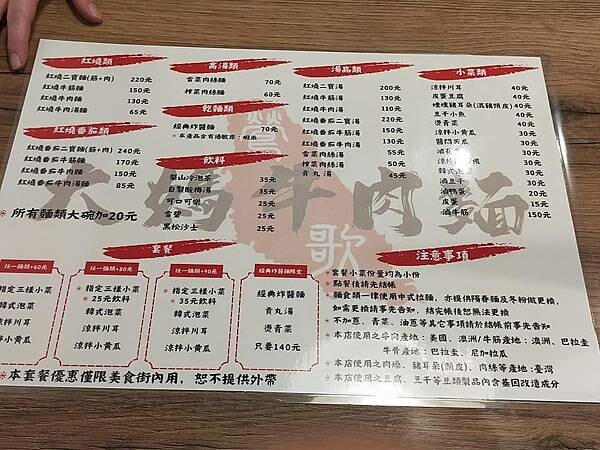 紅燒類
紅燒二寶麵(筋+肉) 220元
紅燒牛筋麵 150元
紅燒牛肉麵 130元
紅燒牛肉湯麵 65元
紅燒番茄類
紅燒番茄二寶麵(筋+肉) 240元
紅燒番茄牛筋麵 170元
紅燒番茄牛肉麵 150元
紅燒番茄牛肉湯麵 85元
※所有麵類大碗加20元
高湯類
雪菜肉絲麵 70元
榨菜肉絲麵 60元
乾麵類
經典炸醬麵 70元
※本產品含有過敏原：蝦米
飲料
梨山冷泡茶 35元
自製酸梅湯 35元
可口可樂 25元
雪碧 25元
黑松沙士 25元
湯品類
紅燒二寶湯 200元
紅燒牛筋湯 130元
紅燒牛肉湯 110元
紅燒番茄二寶湯 220元
紅燒番茄牛筋湯 150元
紅燒番茄牛肉湯 130元
雪菜肉絲湯 55元
榨菜肉絲湯 45元
貢丸湯 45元
小菜類
涼拌川耳 40元
皮蛋豆腐 40元
燻豬耳朵(混豬頭皮) 40元
豆干小魚 40元
燙青菜 40元
涼拌小黃瓜 30元
醬悶苦瓜 30元
滷花干 30元
30元
韓式泡菜 30元
滷豆干 20元
滷鴨蛋 20元
皮蛋 15元
滷牛筋 150元
鶯歌
大媽牛肉麵
套餐
任一麵類+60元
※指定三樣小菜
韓式泡菜
涼拌川耳
涼拌小黃瓜
任一麵類+80元
※指定三樣小菜
※25元飲料
韓式泡菜
涼拌川耳
涼拌小黃瓜
任一麵類+90元
※指定三樣小菜
※35元飲料
韓式泡菜
涼拌川耳
涼拌小黃瓜
經典炸醬麵限定
經典炸醬麵
貢丸湯
燙青菜
只要140元
※本套餐優惠僅限美食街內用，恕不提供外帶
注意事項
※套餐小菜份量均為小份
※點餐後請先結帳
※麵食類一律使用中式拉麵，亦提供陽春麵及冬粉做更換，
如需更換請事先告知，結完帳後恕無法更換
※不加蔥、青菜、油蔥等其它事項請於結帳前事先告知
※本店使用之牛肉產地：美國、澳洲/牛筋產地：澳洲、巴拉圭
牛骨產地：巴拉圭、尼加拉瓜
※本店使用之肉燥、豬耳朵(頭皮)、肉絲等產地:臺灣
※本店使用之豆腐、豆干等豆類製品內含基因改造成分